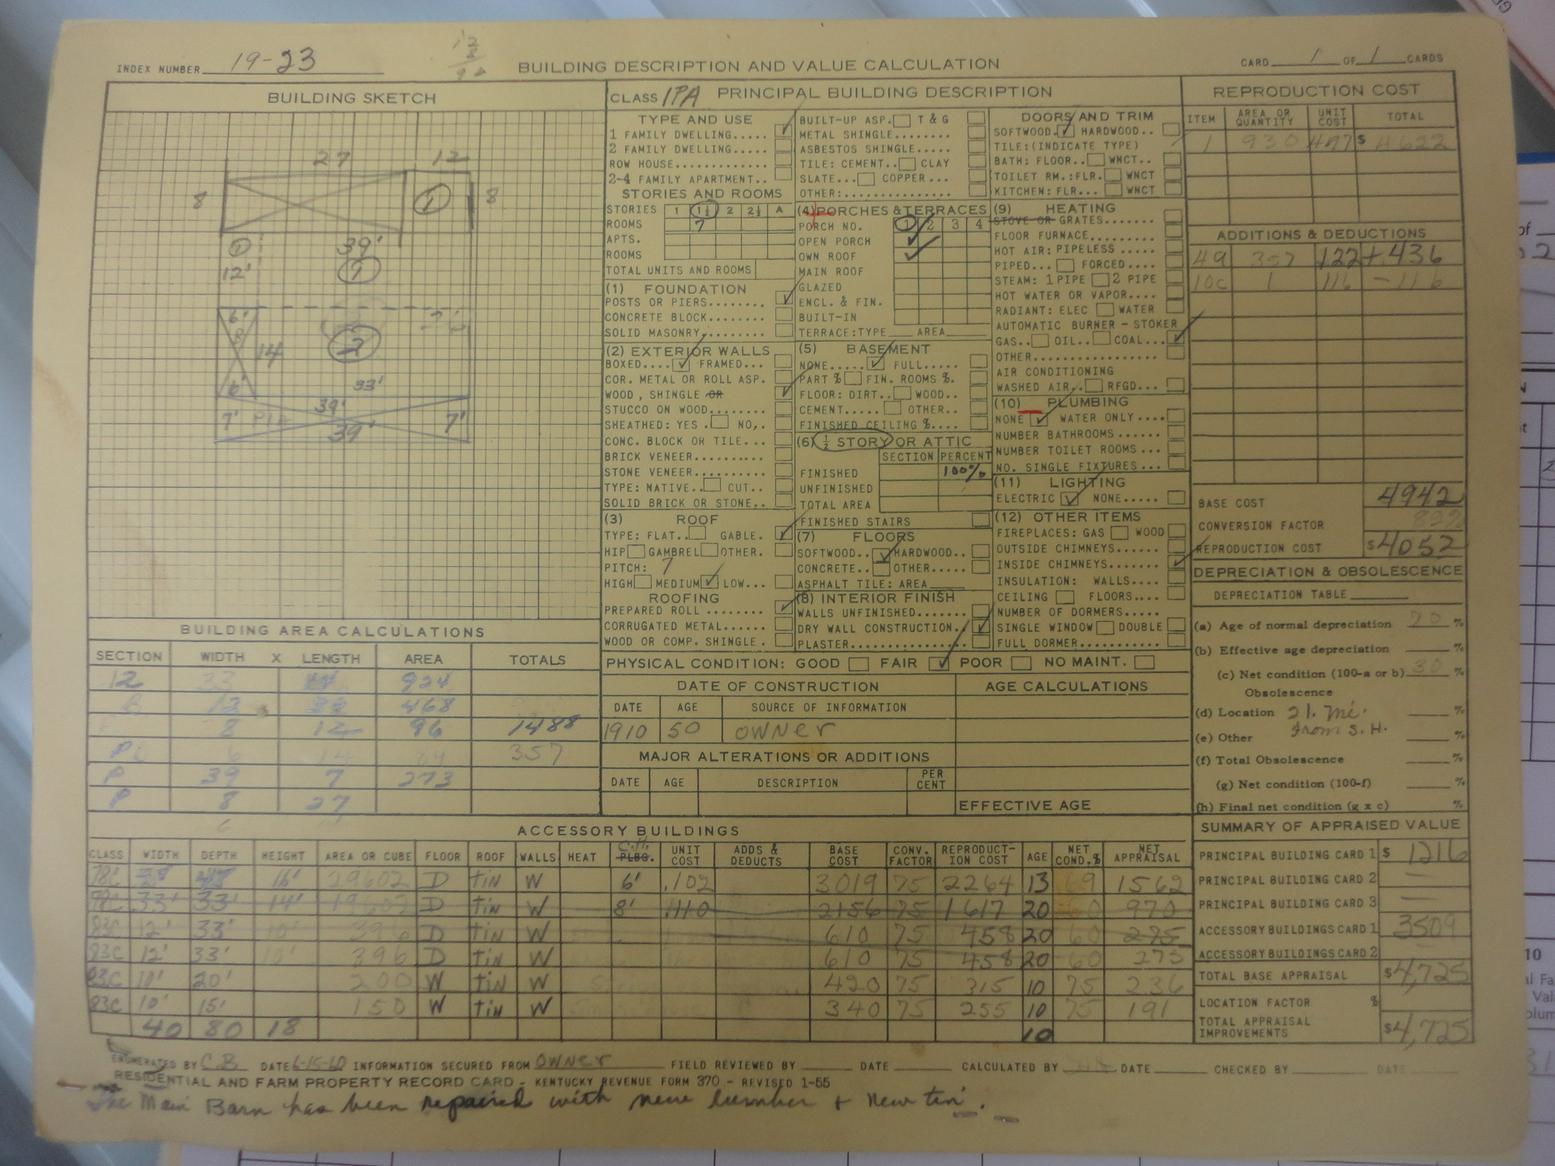 INDEX NUMBER 19-23
BUILDING DESCRIPTION AND VALUE CALCULATION
CARD 1 OF 1 CARDS
BUILDING SKETCH
27 12
8 1 8
1 39'
12' 1
6'
8 14 2
6' 33'
39'
7' 7'
39'
CLASS 1PA PRINCIPAL BUILDING DESCRIPTION
TYPE AND USE
1 FAMILY DWELLING..... ✓
2 FAMILY DWELLING.....
ROW HOUSE.............
2-4 FAMILY APARTMENT..
STORIES AND ROOMS
STORIES 1 1½ 2 2½ A
ROOMS 7
APTS.
ROOMS
TOTAL UNITS AND ROOMS
(1) FOUNDATION
POSTS OR PIERS........ ✓
CONCRETE BLOCK........
SOLID MASONRY.........
(2) EXTERIOR WALLS
BOXED.... ✓ FRAMED...
COR. METAL OR ROLL ASP.
WOOD, SHINGLE OR ✓
STUCCO ON WOOD........
SHEATHED: YES. NO,..
CONC. BLOCK OR TILE...
BRICK VENEER..........
STONE VENEER..........
TYPE: NATIVE.. CUT...
SOLID BRICK OR STONE..
(3) ROOF
TYPE: FLAT.. GABLE. ✓
HIP GAMBREL OTHER.
PITCH: 7
HIGH MEDIUM ✓ LOW...
ROOFING
PREPARED ROLL ........ ✓
CORRUGATED METAL......
WOOD OR COMP. SHINGLE.
BUILT-UP ASP. T & G
METAL SHINGLE.........
ASBESTOS SHINGLE......
TILE: CEMENT.. CLAY
SLATE... COPPER...
OTHER:................
(4) PORCHES & TERRACES
PORCH NO. 1 2 3 4
OPEN PORCH ✓
OWN ROOF ✓
MAIN ROOF
GLAZED
ENCL. & FIN.
BUILT-IN
TERRACE: TYPE AREA
(5) BASEMENT
NONE.... ✓ FULL....
PART % FIN. ROOMS %.
FLOOR: DIRT.. WOOD..
CEMENT.... OTHER...
FINISHED CEILING %....
(6) ½ STORY OR ATTIC
SECTION PERCENT
FINISHED 100%
UNFINISHED
TOTAL AREA
FINISHED STAIRS
(7) FLOORS
SOFTWOOD.. ✓ HARDWOOD..
CONCRETE.. OTHER.....
ASPHALT TILE: AREA
(8) INTERIOR FINISH
WALLS UNFINISHED......
DRY WALL CONSTRUCTION.. ✓
PLASTER...............
DOORS AND TRIM
SOFTWOOD. ✓ HARDWOOD..
TILE: (INDICATE TYPE)
BATH: FLOOR.. WNCT..
TOILET RM.: FLR. WNCT
KITCHEN: FLR... WNCT
(9) HEATING
STOVE OR GRATES.......
FLOOR FURNACE.........
HOT AIR: PIPELESS ....
PIPED... FORCED....
STEAM: 1 PIPE 2 PIPE
HOT WATER OR VAPOR....
RADIANT: ELEC WATER
AUTOMATIC BURNER - STOKER
GAS.. OIL.. COAL... ✓
OTHER.................
AIR CONDITIONING
WASHED AIR.. RFGD...
(10) PLUMBING
NONE ✓ WATER ONLY....
NUMBER BATHROOMS......
NUMBER TOILET ROOMS...
NO. SINGLE FIXTURES...
(11) LIGHTING
ELECTRIC ✓ NONE.....
(12) OTHER ITEMS
FIREPLACES: GAS WOOD
OUTSIDE CHIMNEYS......
INSIDE CHIMNEYS....... ✓
INSULATION: WALLS....
CEILING FLOORS....
NUMBER OF DORMERS.....
SINGLE WINDOW DOUBLE
FULL DORMER...........
PHYSICAL CONDITION: GOOD FAIR ✓ POOR NO MAINT.
DATE OF CONSTRUCTION AGE CALCULATIONS
DATE AGE SOURCE OF INFORMATION
1910 50 OWNER
MAJOR ALTERATIONS OR ADDITIONS
DATE AGE DESCRIPTION PER CENT
EFFECTIVE AGE
REPRODUCTION COST
ITEM AREA OR QUANTITY UNIT COST TOTAL
1 930 497 $ 4622
ADDITIONS & DEDUCTIONS
4a 357 122 + 436
10c 1 116 - 116
BASE COST 4942
CONVERSION FACTOR 82%
REPRODUCTION COST $4052
DEPRECIATION & OBSOLESCENCE
DEPRECIATION TABLE
(a) Age of normal depreciation 70 %
(b) Effective age depreciation %
(c) Net condition (100-a or b) 30 %
Obsolescence
(d) Location 21. mi. from S. H. %
(e) Other %
(f) Total Obsolescence %
(g) Net condition (100-f) %
(h) Final net condition (g x c) %
BUILDING AREA CALCULATIONS
SECTION WIDTH X LENGTH AREA TOTALS
12 33 924
12 39 468
8 12 96 1488
P 6 14 84 357
P 39 7 273
P 8 27
ACCESSORY BUILDINGS
CLASS WIDTH DEPTH HEIGHT AREA OR CUBE FLOOR ROOF WALLS HEAT C.H. PLBG. UNIT COST ADDS & DEDUCTS BASE COST CONV. FACTOR REPRODUCTION COST AGE NET COND.% NET APPRAISAL
78C 16' 29602 D tin W 6' .102 3019 75 2264 13 69 1562
78C 33' 33' 14' 19602 D tin W 8' .110 2156 75 1617 20 60 970
83C 12' 33' 10' 396 D tin W 610 75 458 20 60 275
83C 12' 33' 10' 396 D tin W 610 75 458 20 60 275
83C 10' 20' 200 W tin W 420 75 315 10 75 236
83C 10' 15' 150 W tin W 340 75 255 10 75 191
40 80 18 10
SUMMARY OF APPRAISED VALUE
PRINCIPAL BUILDING CARD 1 $ 1216
PRINCIPAL BUILDING CARD 2 —
PRINCIPAL BUILDING CARD 3 —
ACCESSORY BUILDINGS CARD 1 3509
ACCESSORY BUILDINGS CARD 2 —
TOTAL BASE APPRAISAL $4,725
LOCATION FACTOR %
TOTAL APPRAISAL IMPROVEMENTS $4,725
ENUMERATED BY C.B. DATE 6-15-60 INFORMATION SECURED FROM OWNER FIELD REVIEWED BY DATE CALCULATED BY DATE CHECKED BY DATE
RESIDENTIAL AND FARM PROPERTY RECORD CARD - KENTUCKY REVENUE FORM 370 - REVISED 1-55
The Main Barn has been repaired with new lumber + New tin.